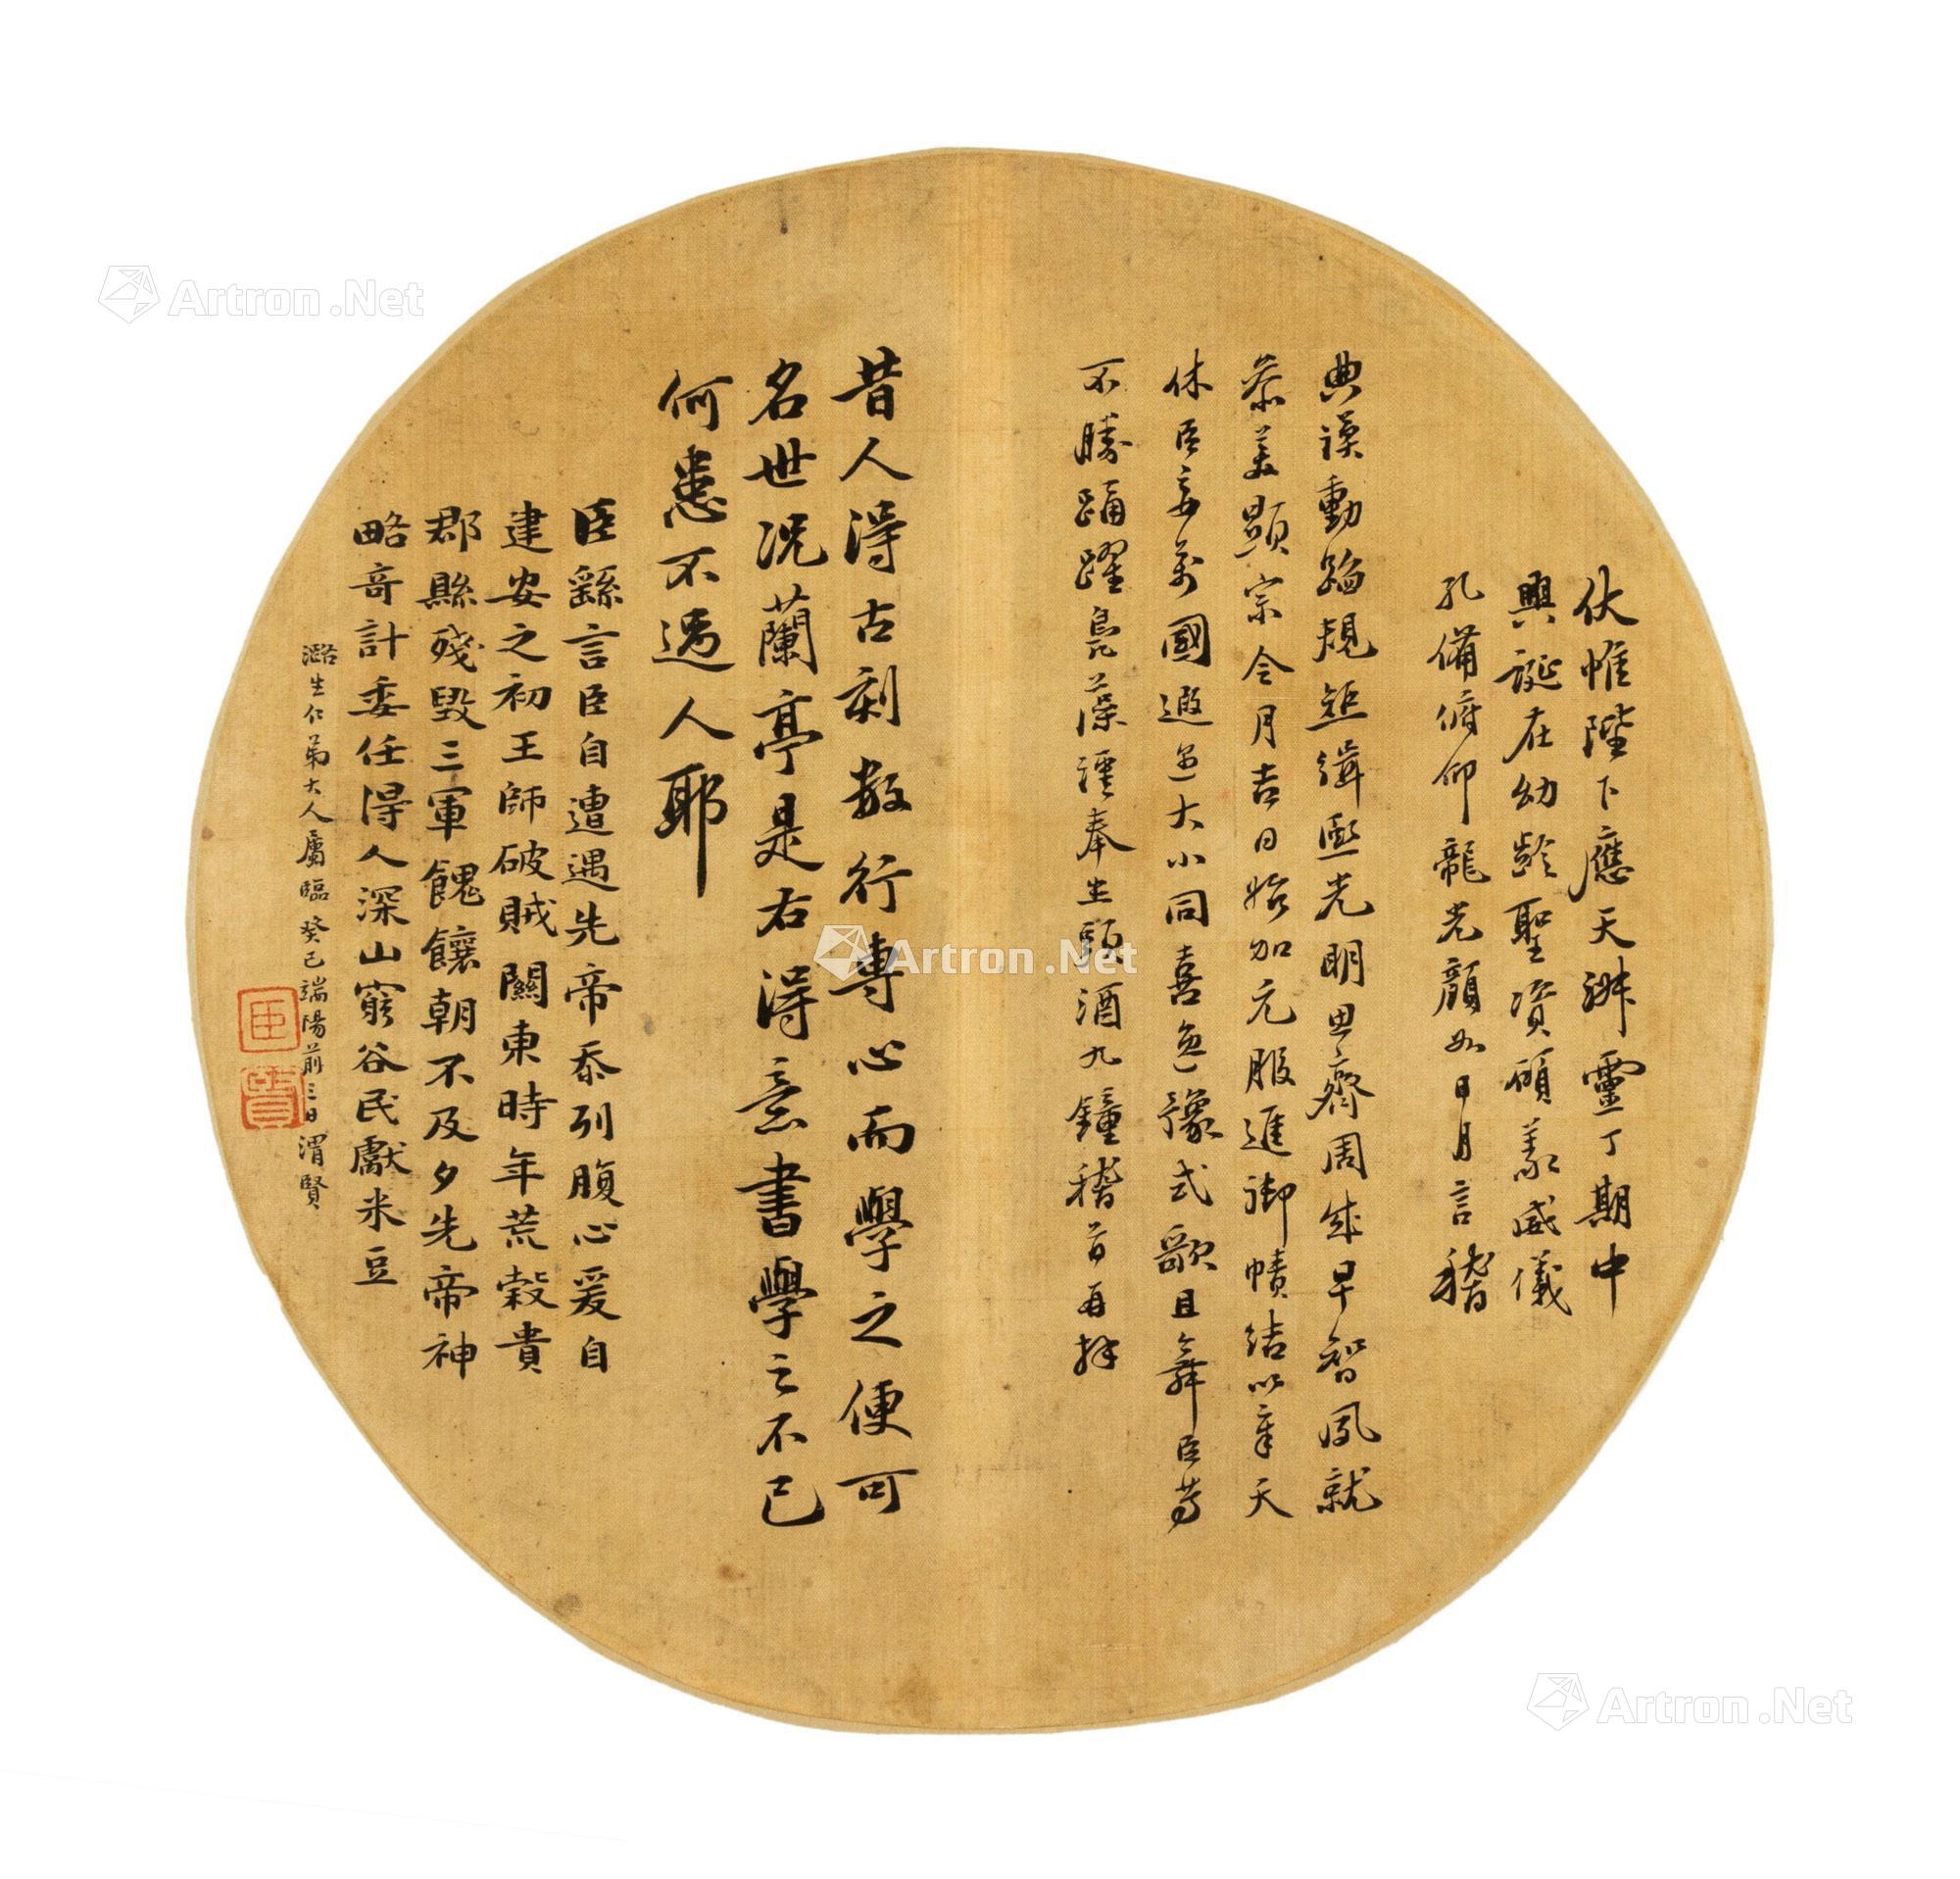 伏惟陛下應天淋靈丁期中
興誕在幼齡聖資碩義威儀
孔備俯仰龍光顏如日月言稽
典謨動蹈規矩緝熙光明思齊周成早智夙就
恭美顯宗令月吉日始加元服進御幘結以章天
休臣妾萬國遐邇大小同喜逸豫式歌且舞臣等
不勝踊躍鳧藻謹奉生頭酒九鐘稽首再拜
昔人得古刻數行專心而學之便可
名世況蘭亭是右得意書學之不已
何患不過人耶
臣繇言臣自遭遇先帝忝列腹心爰自
建安之初王師破賊關東時年荒穀貴
郡縣殘毀三軍餽饟朝不及夕先帝神
略奇計委任得人深山窮谷民獻米豆
潞生仁弟大人屬臨癸巳端陽前三日渭賢
Artron.Net
Artron.Net
Artron.Net